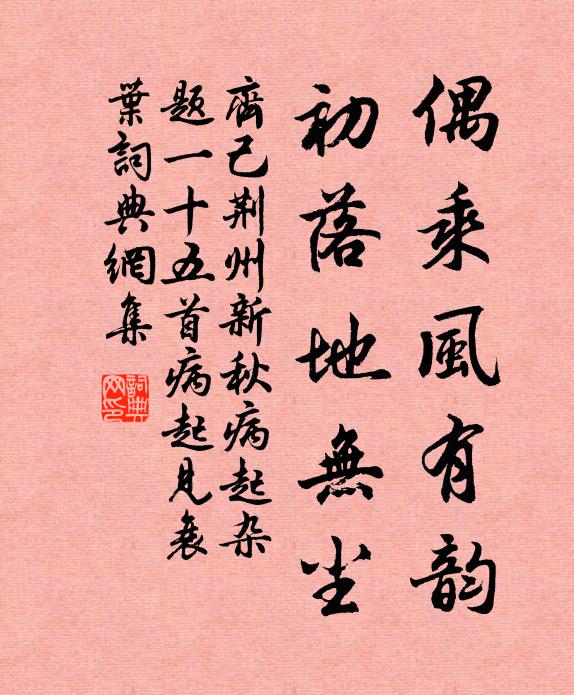 偶乘風有韵
初落地無尘
齊己荆州新秋病起杂
题一十五首病起見衰
葉詞典網集
詞典
网印